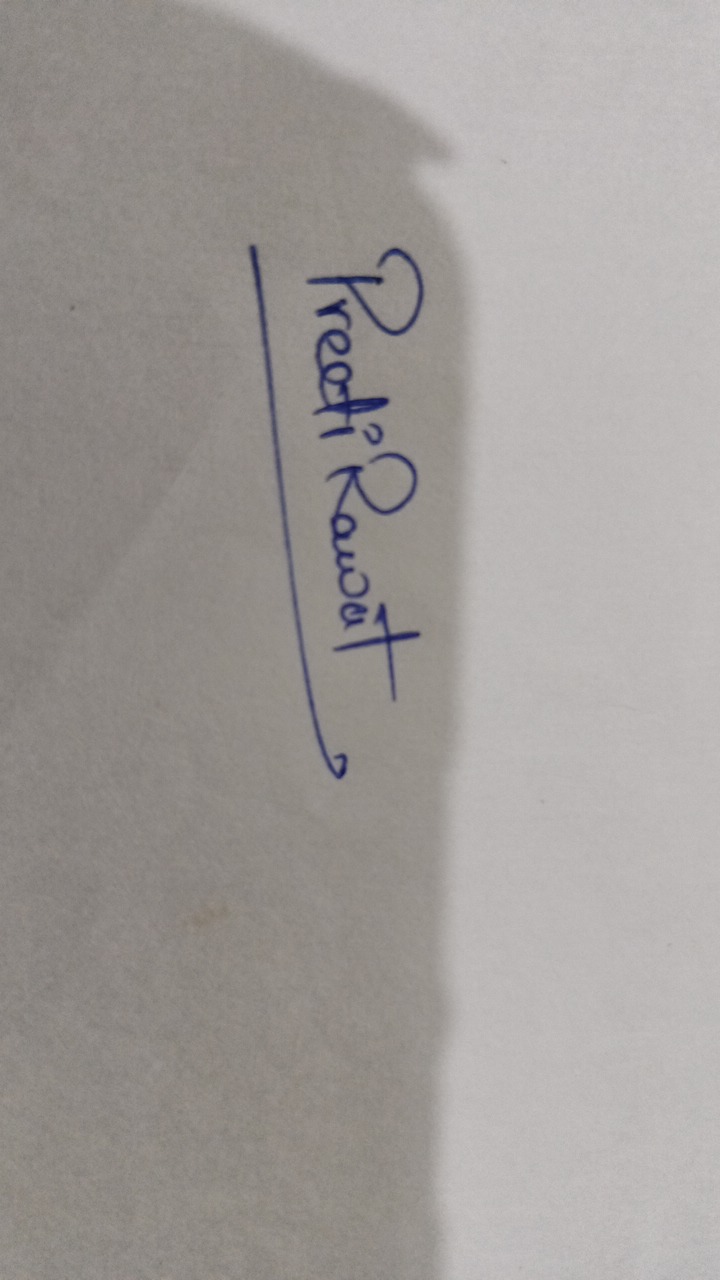 Preeti Rawat